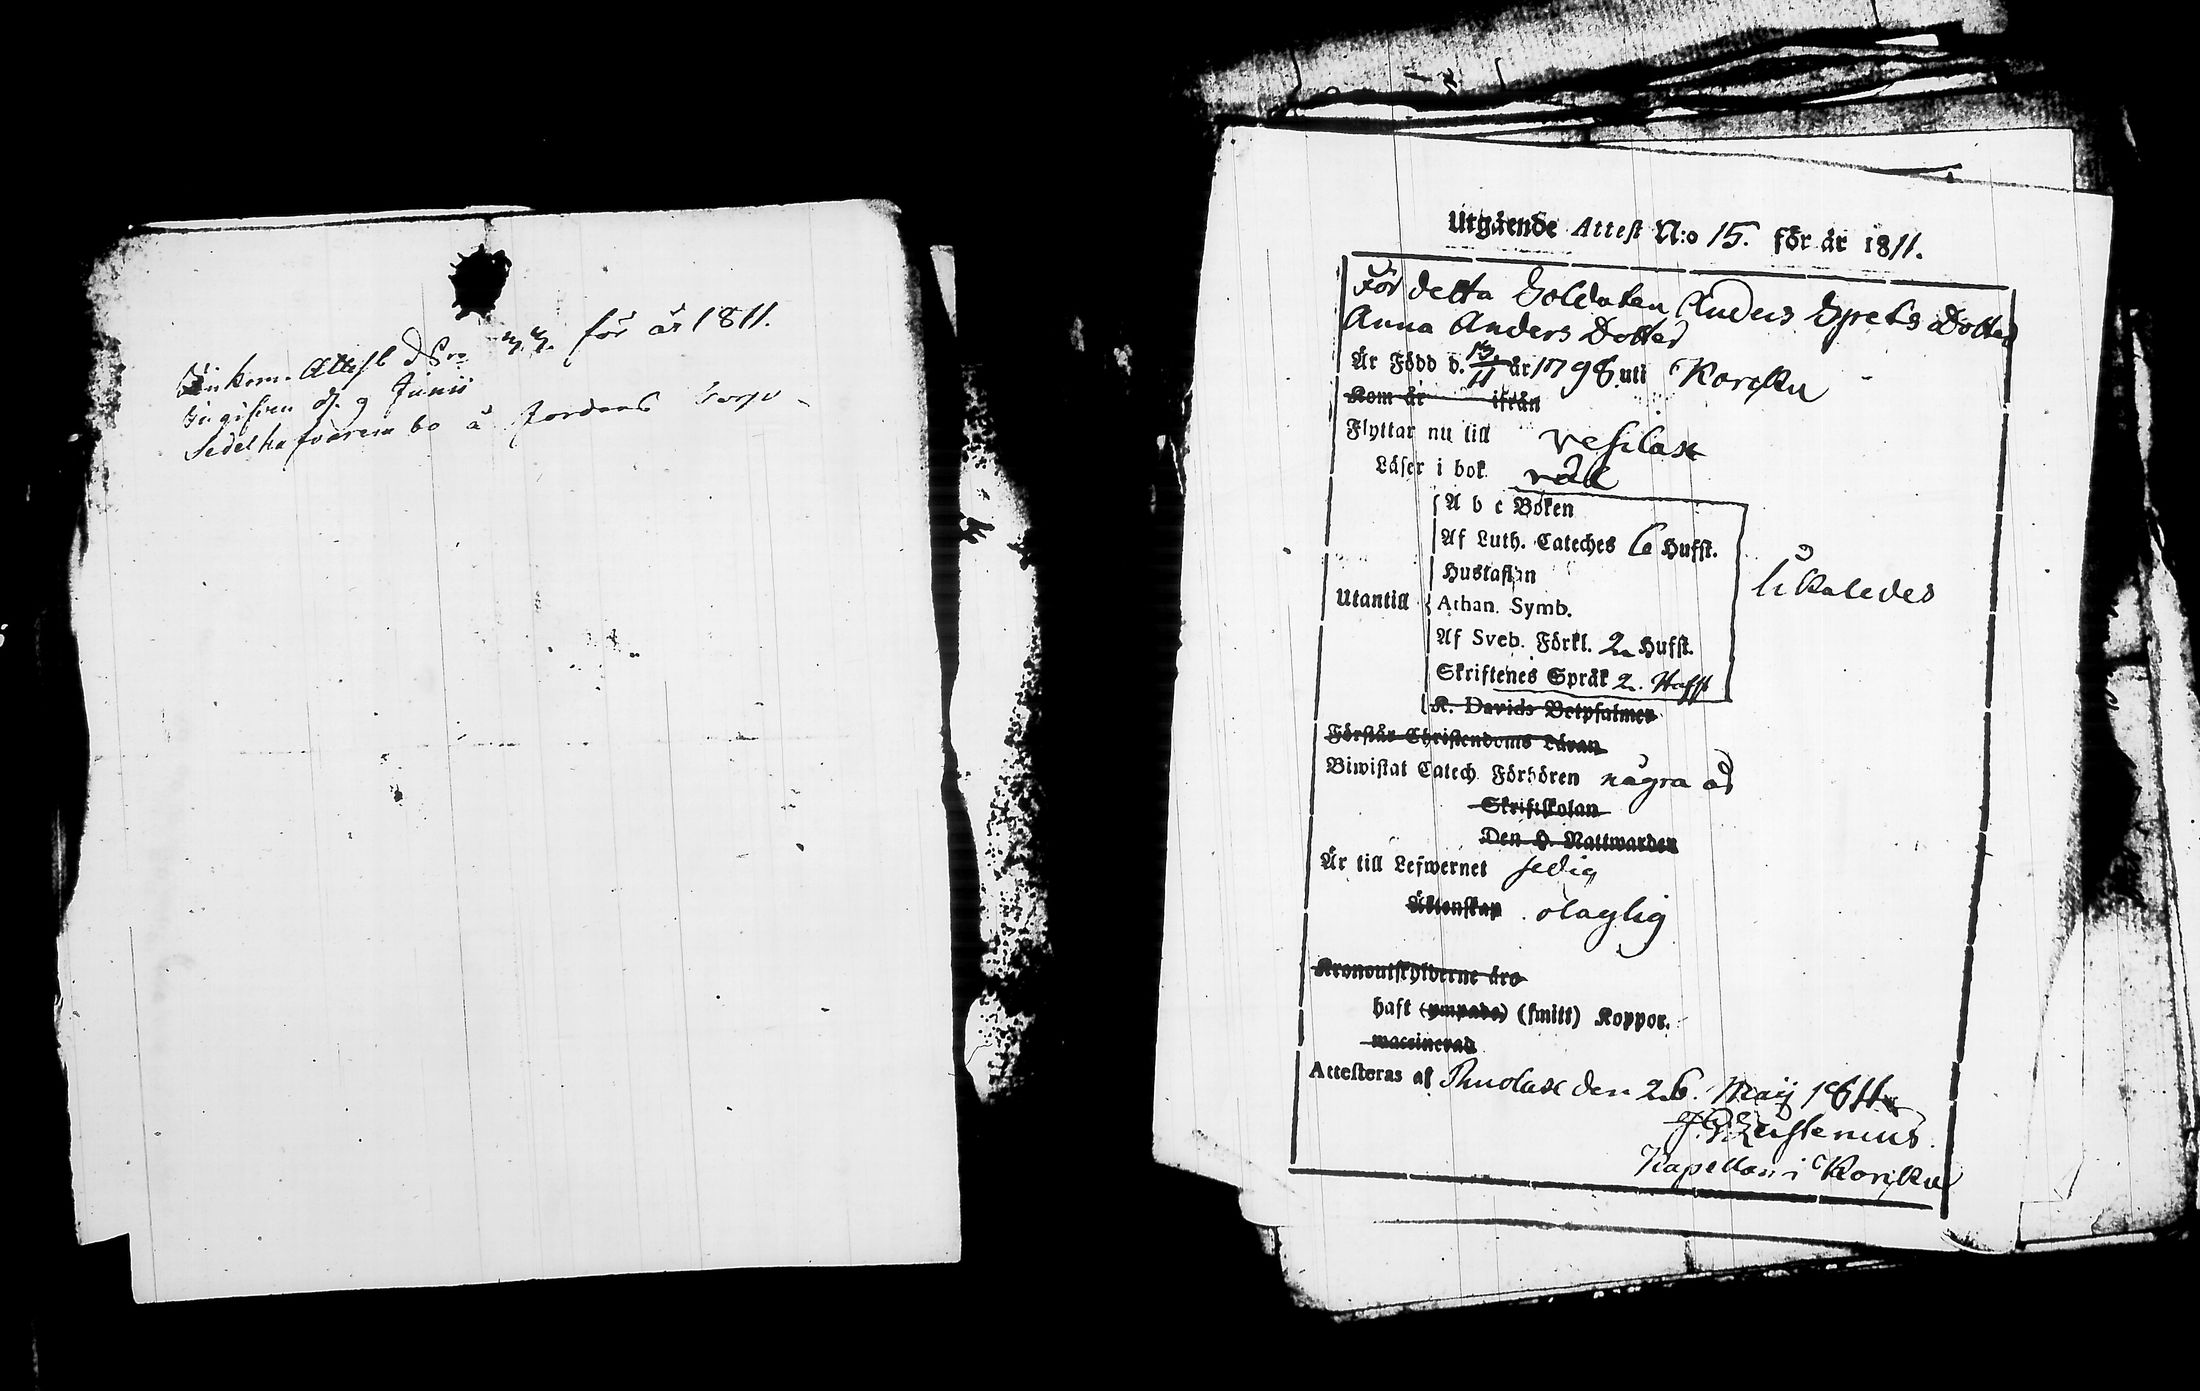 Inkom. Attest Nro 33. för år 1811.
Ingifven d. 9 Junii
Sedelhafvaren bo å Jordans Torp
Utgående Attest N:o 15. för år 1811.
För detta Soldaten Anders Sprets Dotter
Anna Anders Dotter
Är Född d. 13/11 år 1798 uti Korpku
Kom år ifrån
Flyttar nu till Vesilax
Läser i bok väl
A b c Boken
Af Luth. Cateches 6 Hufst.
Hustaflan
Utantill Athan. Symb. likaledes
Af Sveb. Förkl. 2 Hufst.
Skriftenes Språk 2. Hufst
K. Davids Botpsalmer
Förstår Christendoms Läran
Biwistat Catech. Förhören några år
Skriftskolan
Den H. Nattwarden
Är till Lefwernet sedig
Äktenskap olaglig
Kronoutskylderne äro
haft (ympade) (smitt) Koppor.
vaccinerad
Attesteras af den 26. Maij 1811
Kapellan i Korpku